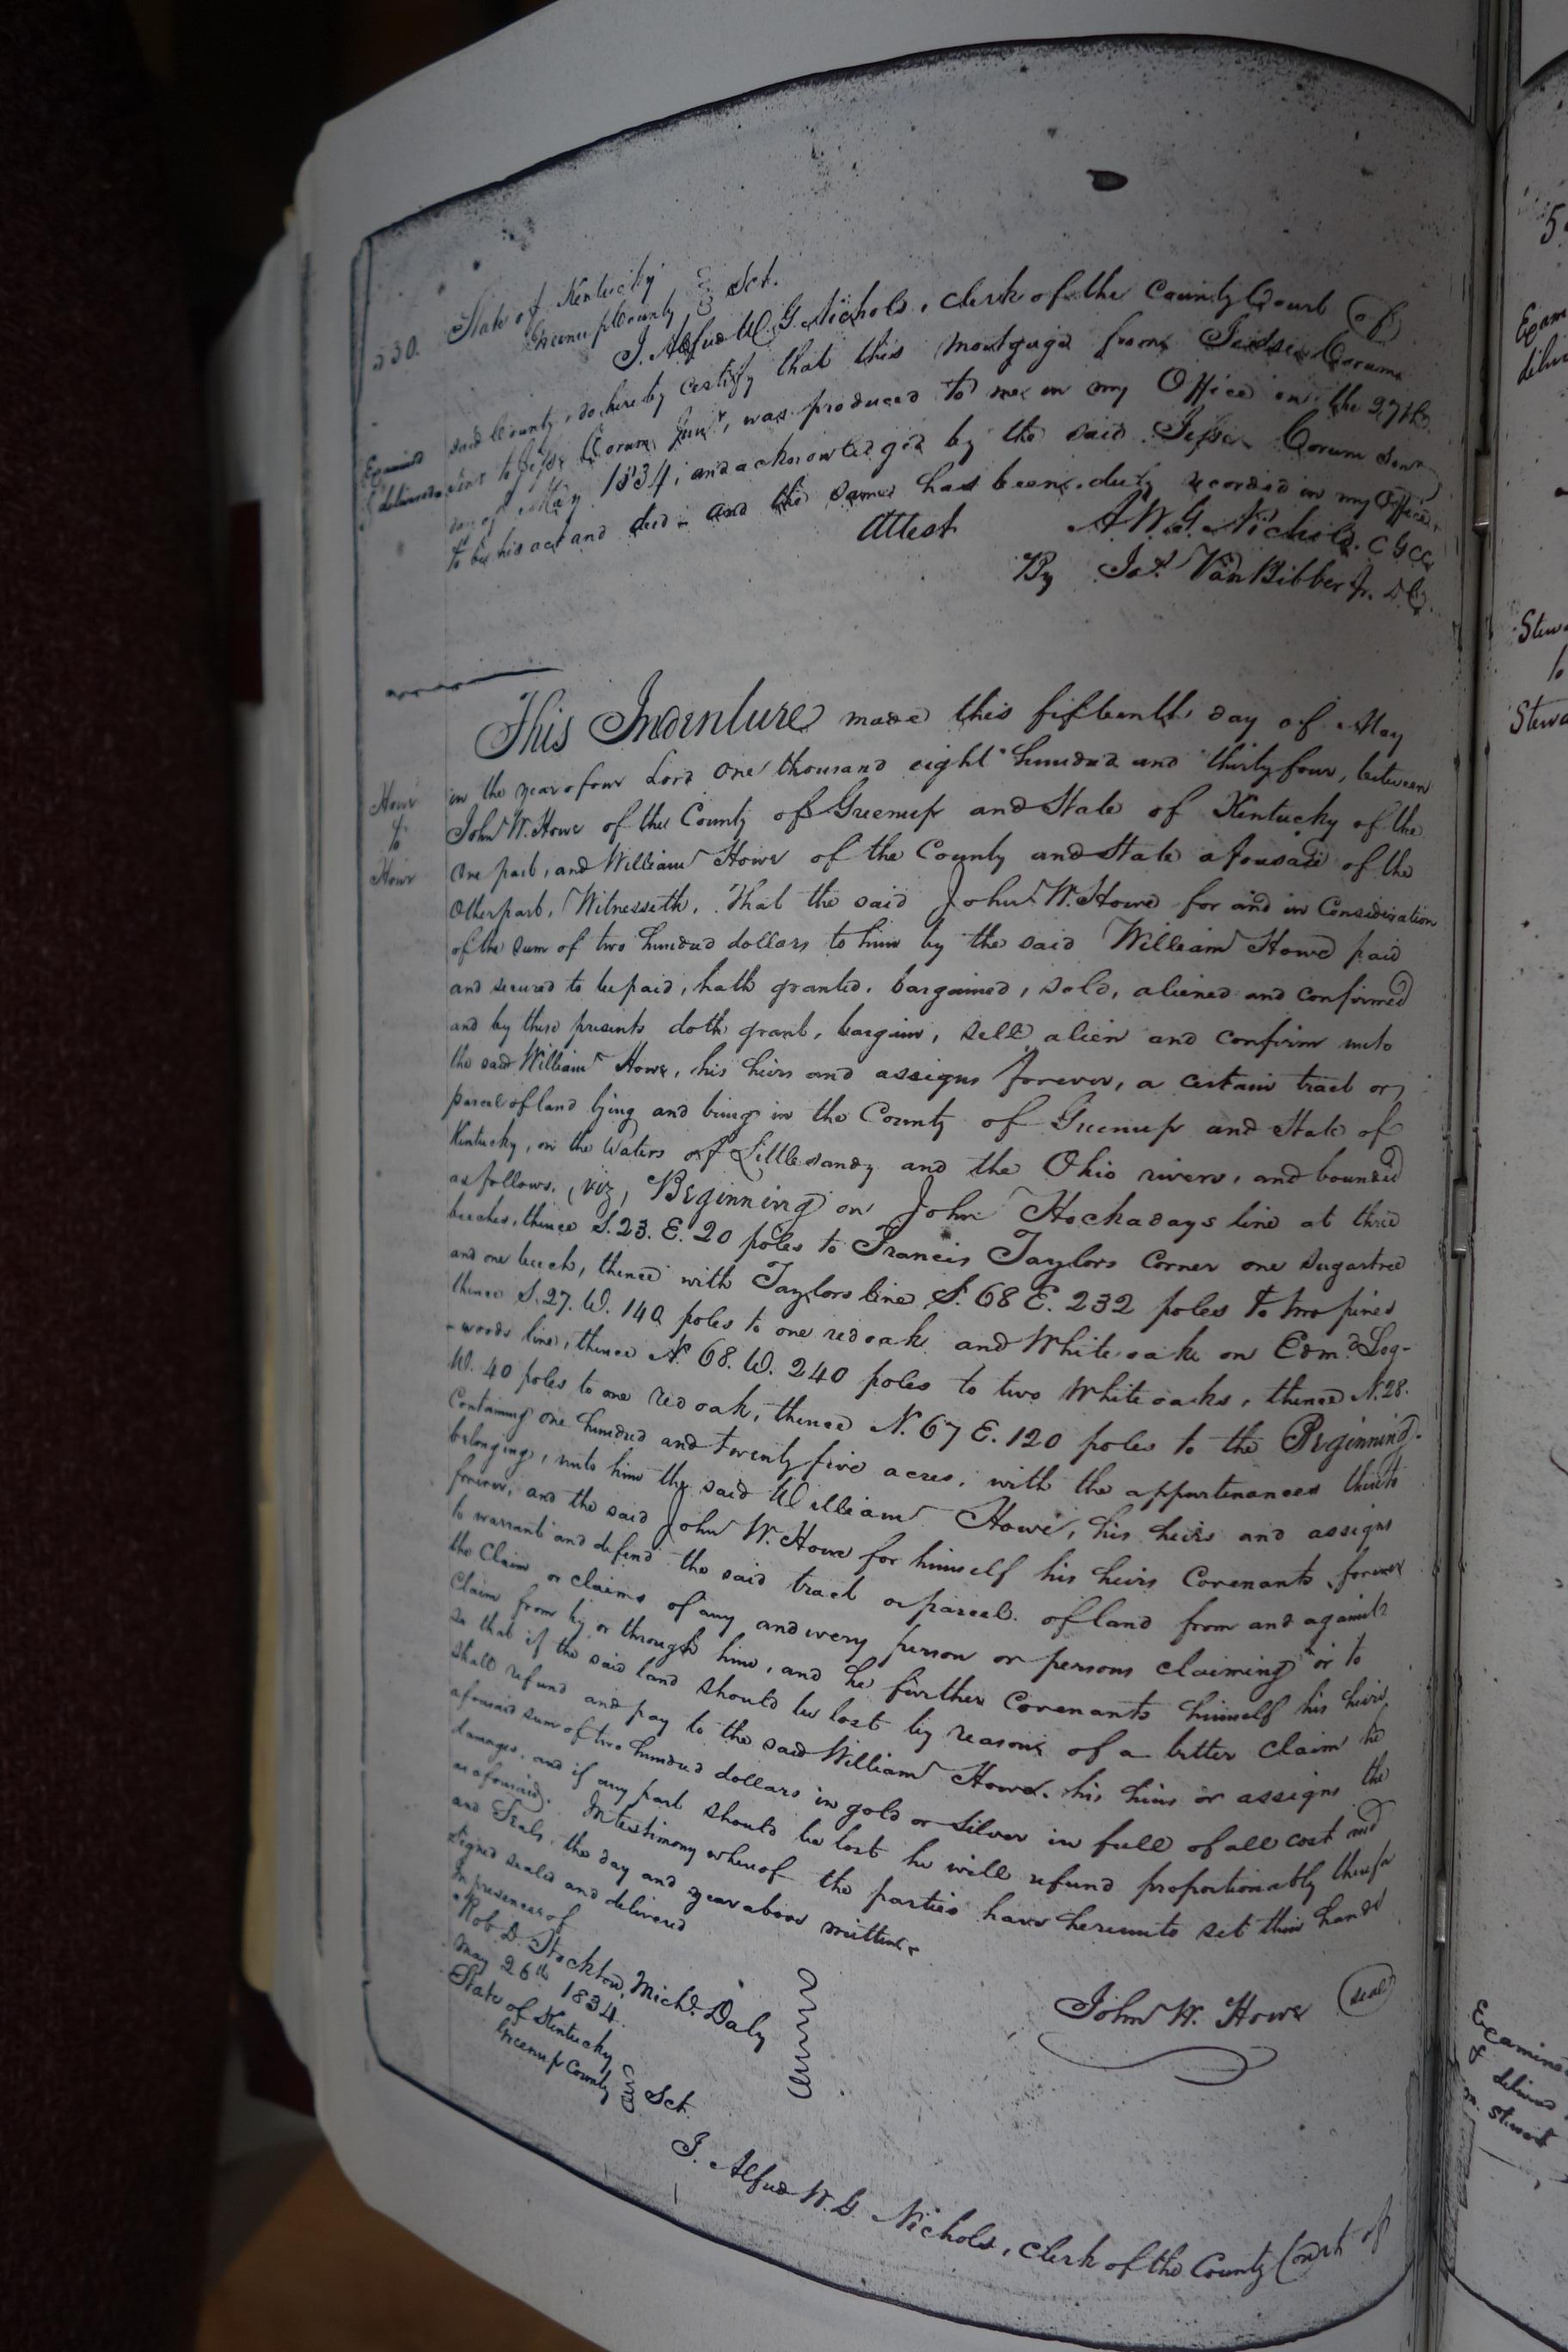 530.
State of Kentucky
Greenup County, Sct.
I. Alfred W. G. Nichols, clerk of the County Court of
said County, do hereby certify that this mortgage from Jesse Corum
Examined
& delivered
sen'r to Jesse Corum Jun'r, was produced to me in my Office on the 27th
day of May 1834, and acknowledged by the said Jesse Corum Sen'r
to be his act and deed and the same has been duly recorded in my Office.
Attest A. W. G. Nichols. C G C C
By Jas. VanBibber Jr. D C.
This Indenture made this fifteenth day of May
Howe
to
Howe
in the year of our Lord one thousand eight hundred and thirty four, between
John W. Howe of the County of Greenup and State of Kentucky of the
One part, and William Howe of the County and State aforesaid of the
Other part, Witnesseth, That the said John W. Howe for and in Consideration
of the sum of two hundred dollars to him by the said William Howe paid
and secured to be paid, hath granted, bargained, sold, aliened and confirmed
and by these presents doth grant, bargain, sell alien and confirm unto
the said William Howe, his heirs and assigns forever, a certain tract or
parcel of land lying and being in the County of Greenup and State of
Kentucky, on the Waters of Little sandy and the Ohio rivers, and bounded
as follows, (viz, Beginning on John Hockadays line at three
beeches, thence S. 23. E. 20 poles to Francis Taylors Corner one sugartree
and one beech, thence with Taylors line S. 68 E. 232 poles to two pines
thence S. 27. W. 140 poles to one red oak and White oak on Edmd Log-
-woods line, thence N. 68. W. 240 poles to two White oaks, thence N. 28.
W. 40 poles to one red oak, thence N. 67 E. 120 poles to the Beginning.
Containing one hundred and twenty five acres, with the appurtenances thereto
belonging, unto him the said William Howe, his heirs and assigns
forever, and the said John W. Howe for himself his heirs Covenants forever
to warrant and defend the said tract or parcel of land from and against
the Claim or claims of any and every person or persons claiming or to
Claim from by or through him, and he further Covenants himself his heirs
so that if the said land should be lost by reason of a better claim he
shall refund and pay to the said William Howe his heirs or assigns the
aforesaid sum of two hundred dollars in gold or silver in full of all cost and
damages, and if any part should be lost he will refund proportionably therefor
as aforesaid. In testimony whereof the parties have hereunto set their hands
and Seals, the day and year above written.
Signed sealed and delivered
In presence of
Rob. D. Stockton, Michl. Daly
John W. Howe seal
May 26th 1834.
State of Kentucky
Greenup County Sct.
I. Alfred W. G. Nichols, Clerk of the County Court of
Exam
deliv
Stewa
to
Stewa
Examined
&
delivered
Stewart